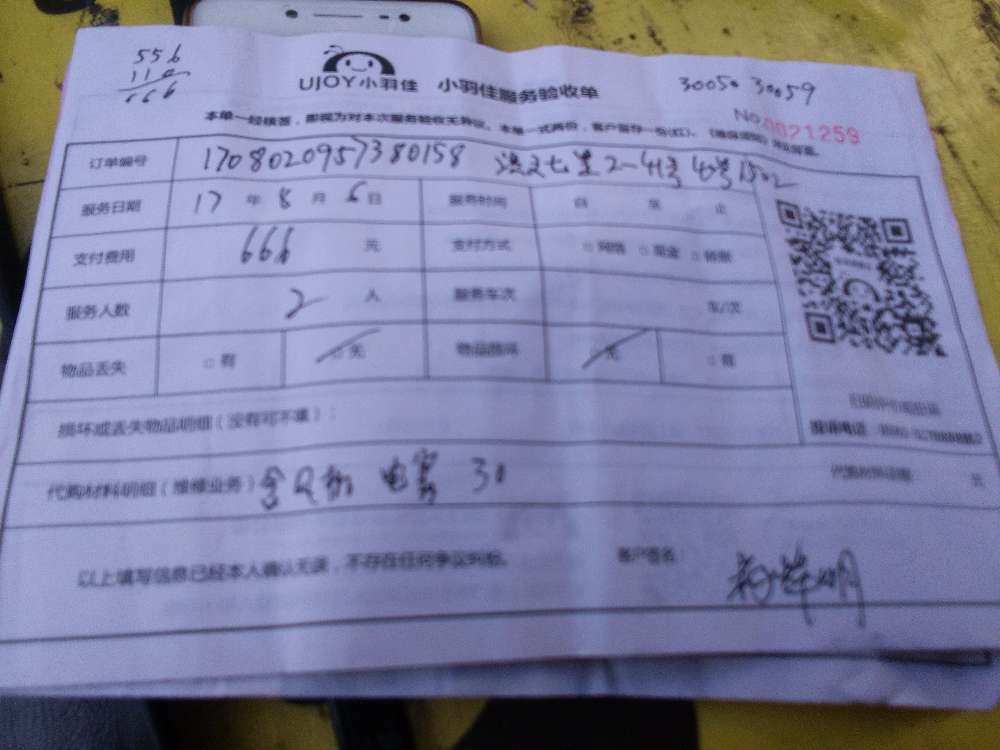 556
110
666
UJOY小羽佳 小羽佳服务验收单
30050 30059
本单一经核签，即视为对本次服务验收无异议。本单一式两份，客户留存一份(红)、
No.0021259
订单编号 1708020957380158
服务日期 17 年 8 月 6 日 服务时间 自 至 止
支付费用 666 元 支付方式 □ 网络 □ 现金 □ 转账
服务人数 2 人 服务车次 车/次
物品丢失 □ 有 □ 无 物品损坏 □ 无 □ 有
损坏或丢失物品明细（没有可不填）：
代购材料明细（维修业务） 电容 30 代购材料总额 元
以上填写信息已经本人确认无误，不存在任何争议纠纷。 客户签名：